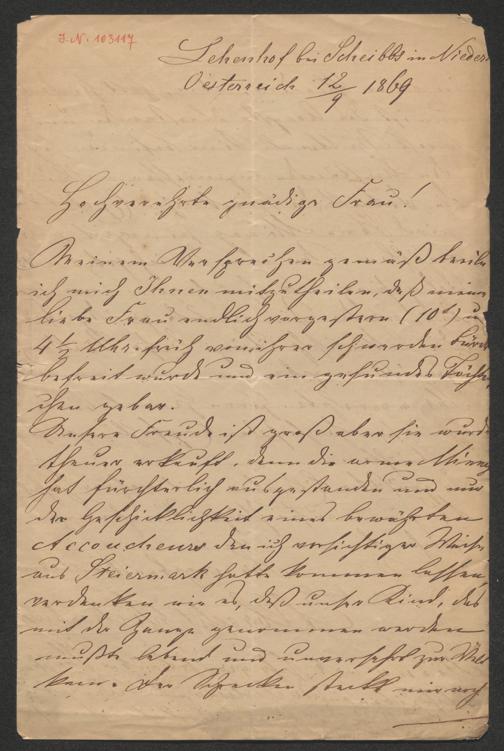 J.N. 103117
Lehenhof bei Scheibbs in Nieder
Oesterreich 12/9 1869
Hochverehrte gnädige Frau!
Meinem Versprechen gemäß beeile
ich mich Ihnen mitzutheilen, daß meine
liebe Frau endlich vorgestern (10t) um
4 1/2 Uhr früh von ihrer schweren Bürde
befreit wurde und ein gesundes Töchter
chen gebar.
Unsere Freude ist groß aber sie wurde
theuer erkauft, denn die arme Minna
hat fürchterlich ausgestanden und nur
der Geschicklichkeit eines bewährten
Accoucheurs den ich vorsichtiger Weise
aus Steiermark hatte kommen lassen
verdanken wir es, daß unser Kind, das
mit der Zange genommen werden
mußte lebend und unversehrt zur Welt
kam. Der Schrecken steckt mir noch